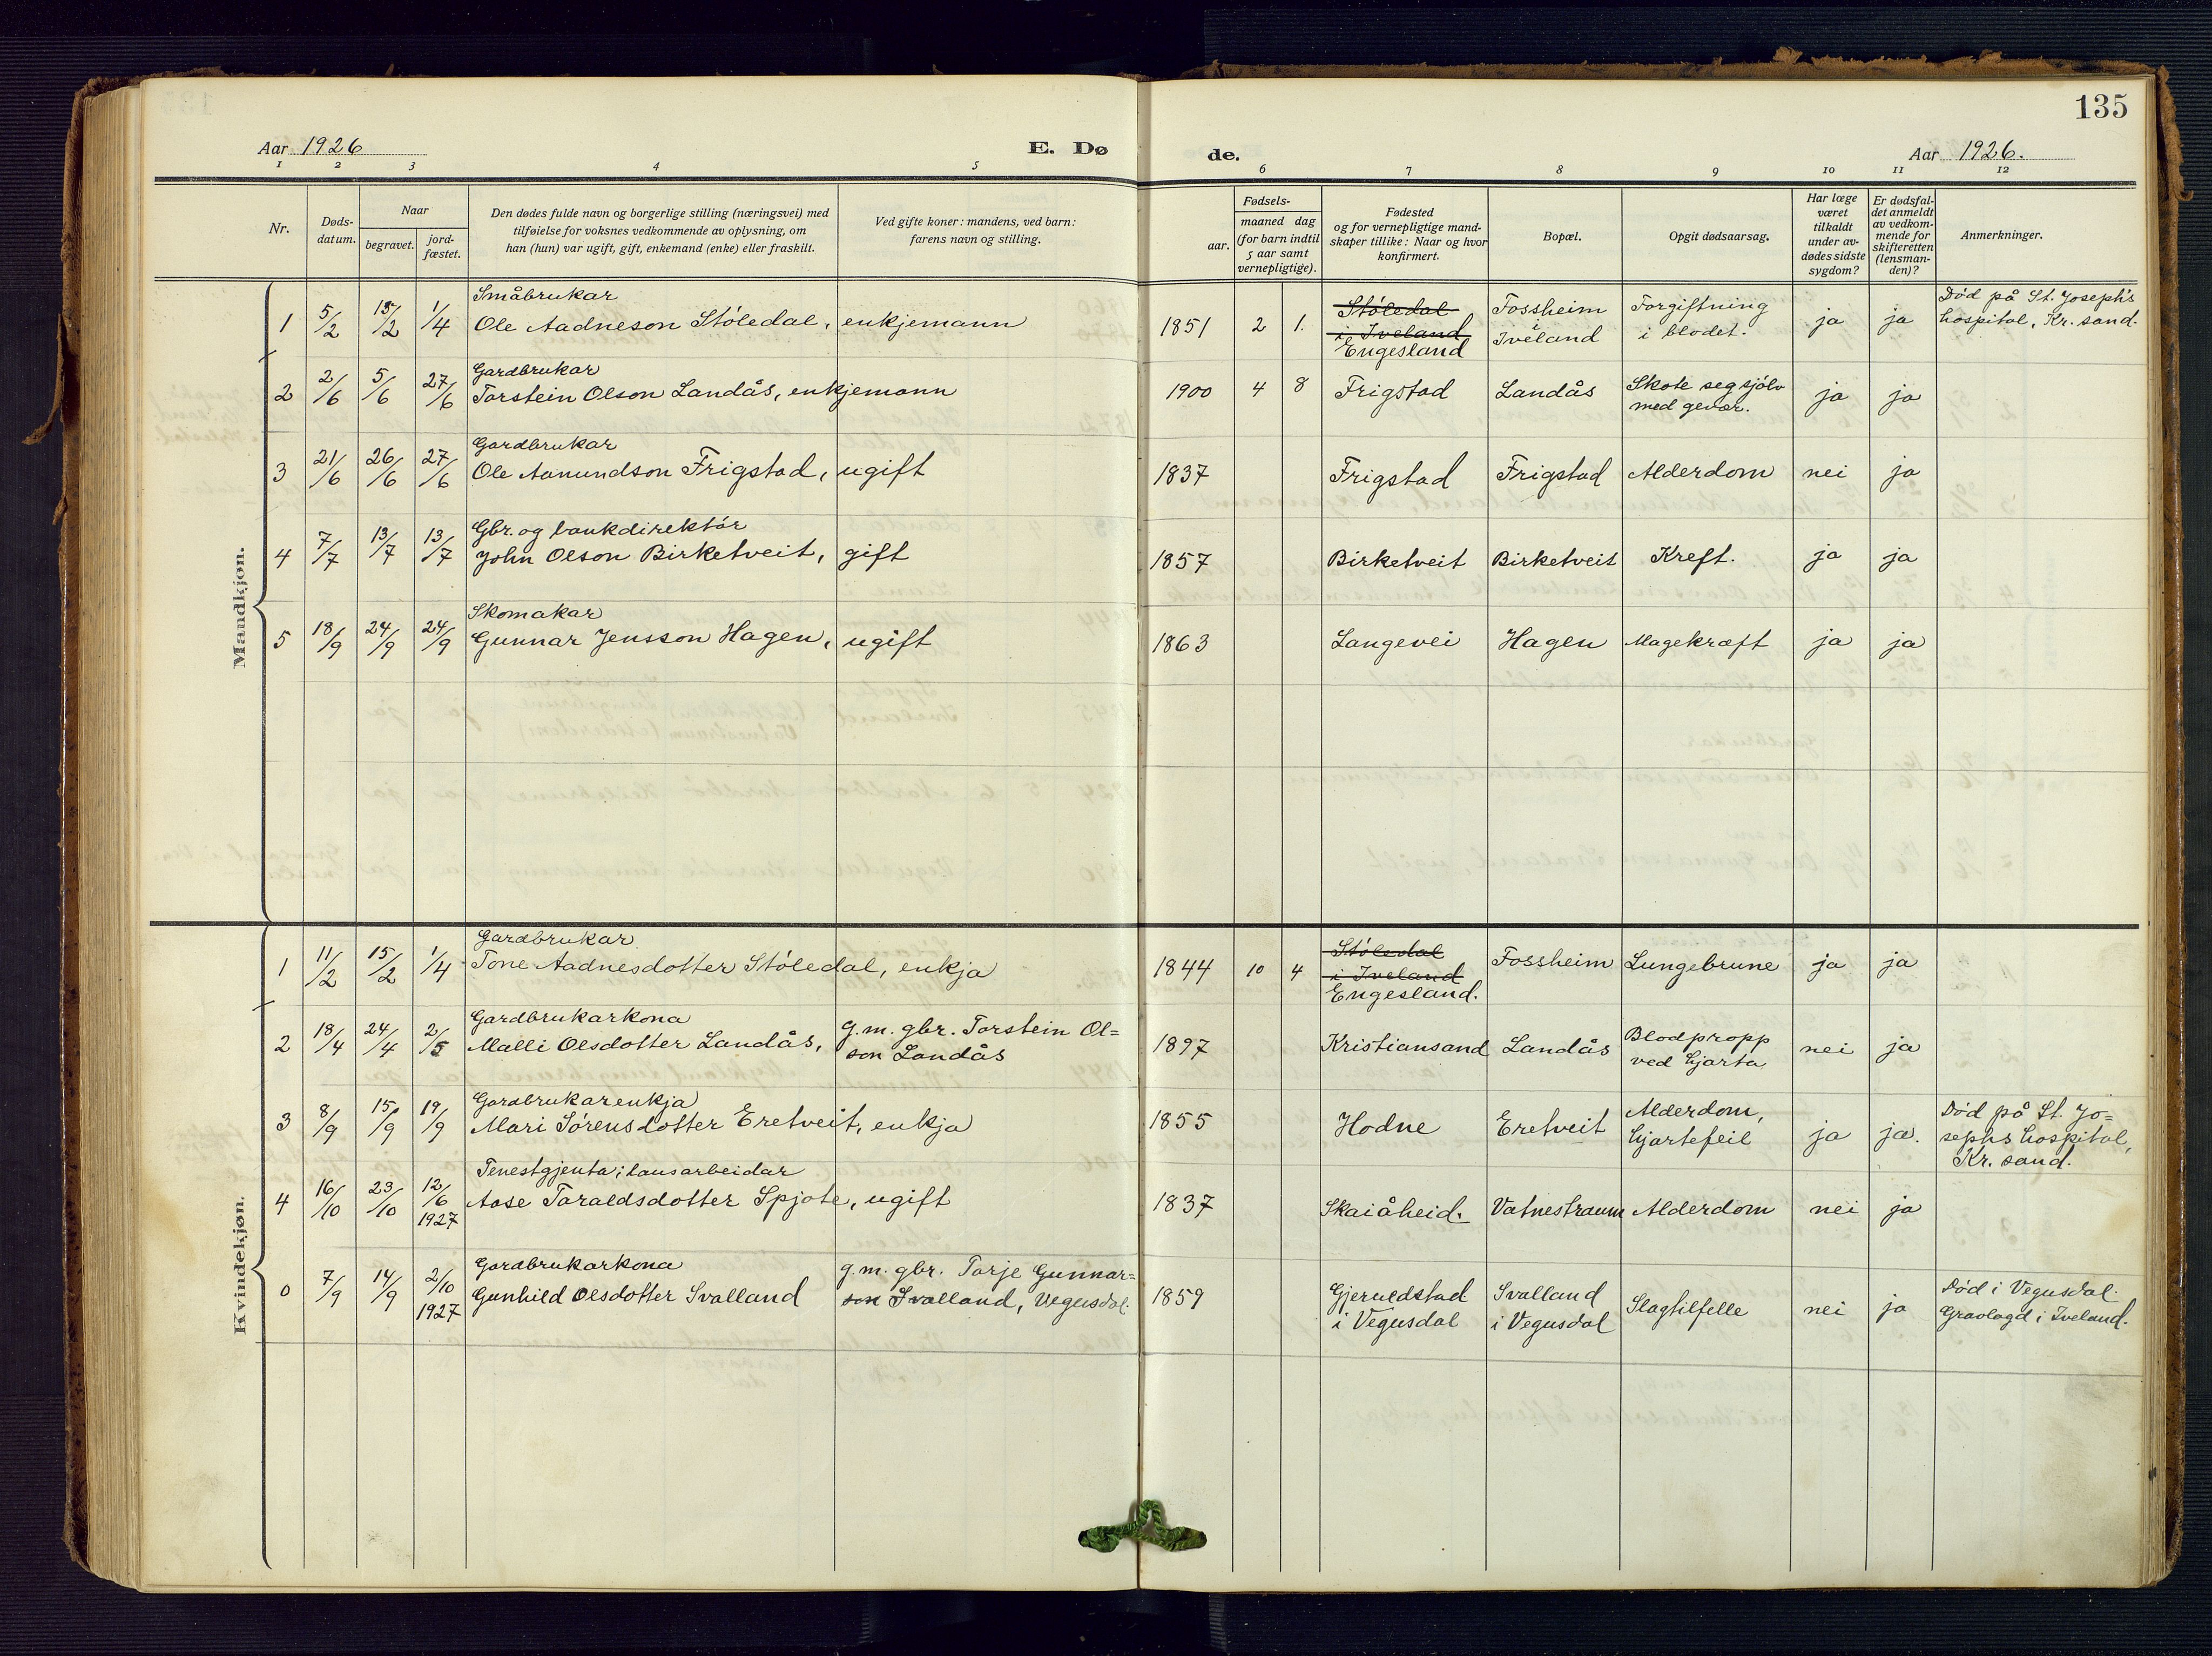 135
Aar 1926
E. Dø
de.
Aar 1926.
1 2 3 4 5 6 7 8 9 10 11 12
Nr.
Døds-
datum.
Naar
begravet.
jord-
fæstet.
Den dødes fulde navn og borgerlige stilling (næringsvei) med
tilføielse for voksnes vedkommende av oplysning, om
han (hun) var ugift, gift, enkemand (enke) eller fraskilt.
Ved gifte koner: mandens, ved barn:
farens navn og stilling.
Fødsels-
aar.
maaned dag
(for barn indtil
5 aar samt
vernepligtige).
Fødested
og for vernepligtige mand-
skaper tillike: Naar og hvor
konfirmert.
Bopæl.
Opgit dødsaarsag.
Har læge
været
tilkaldt
under av-
dødes sidste
sygdom?
Er dødsfal-
det anmeldt
av vedkom-
mende for
skifteretten
(lensman-
den)?
Anmerkninger.
Mandkjøn.
Småbrukar
1 5/2 15/2 1/4 Ole Aadneson Stóledal, enkjemann 1851 2 1.
Stóledal
i Iveland
Engesland
Fossheim
i
Iveland
Forgiftning
i blodet.
ja ja
Død på St. Joseph's
hospital, Kr. sand.
Gardbrukar
2 2/6 5/6 27/6 Torstein Olson Landås, enkjemann 1900 4 8 Frigstad Landås
Skote seg sjólv
med gevær.
ja ja
Gardbrukar
3 21/6 26/6 27/6 Ole Aamundson Frigstad, ugift 1837 Frigstad Frigstad Alderdom nei ja
Gbr. og bankdirektór
4 7/7 13/7 13/7 John Olson Birketveit, gift 1857 Birketveit Birketveit Kreft. ja ja
Skomakar
5 18/9 24/9 24/9 Gunnar Jensson Hagen, ugift 1863 Langevei Hagen Magekræft ja ja
Kvindekjøn.
Gardbrukar
1 11/2 15/2 1/4 Tone Aadnesdotter Stóledal, enkja 1844 10 4
Stóledal
i Iveland
Engesland.
Fossheim Lungebrune ja ja
Gardbrukarkona
2 18/4 24/4 2/5 Malli Olsdotter Landås,
g.m. gbr. Torstein Ol=
son Landås
1897 Kristiansand Landås
Blodpropp
ved hjarta
nei ja
Gardbrukarenkja
3 8/9 15/9 19/9 Mari Sórensdotter Eretveit, enkja 1855 Hodne Eretveit
Alderdom,
hjartefeil
ja ja.
Død på St. Jo=
sephs hospital,
Kr. sand.
Tenestgjenta; lausarbeidar
4 16/10 23/10 12/6 1927 Aase Taraldsdotter Spjote, ugift 1837 Skaiåheid. Vatnestraum Alderdom nei ja
Gardbrukarkona
0 7/9 14/9 2/10 1927 Gunhild Olsdotter Svalland
g.m. gbr. Tarje Gunnar=
son Svalland, Vegusdal.
1859
Gjeruldstad
i Vegusdal
Svalland
i Vegusdal
Slagtilfelle nei ja
Død i Vegusdal.
Gravlagd i Iveland.